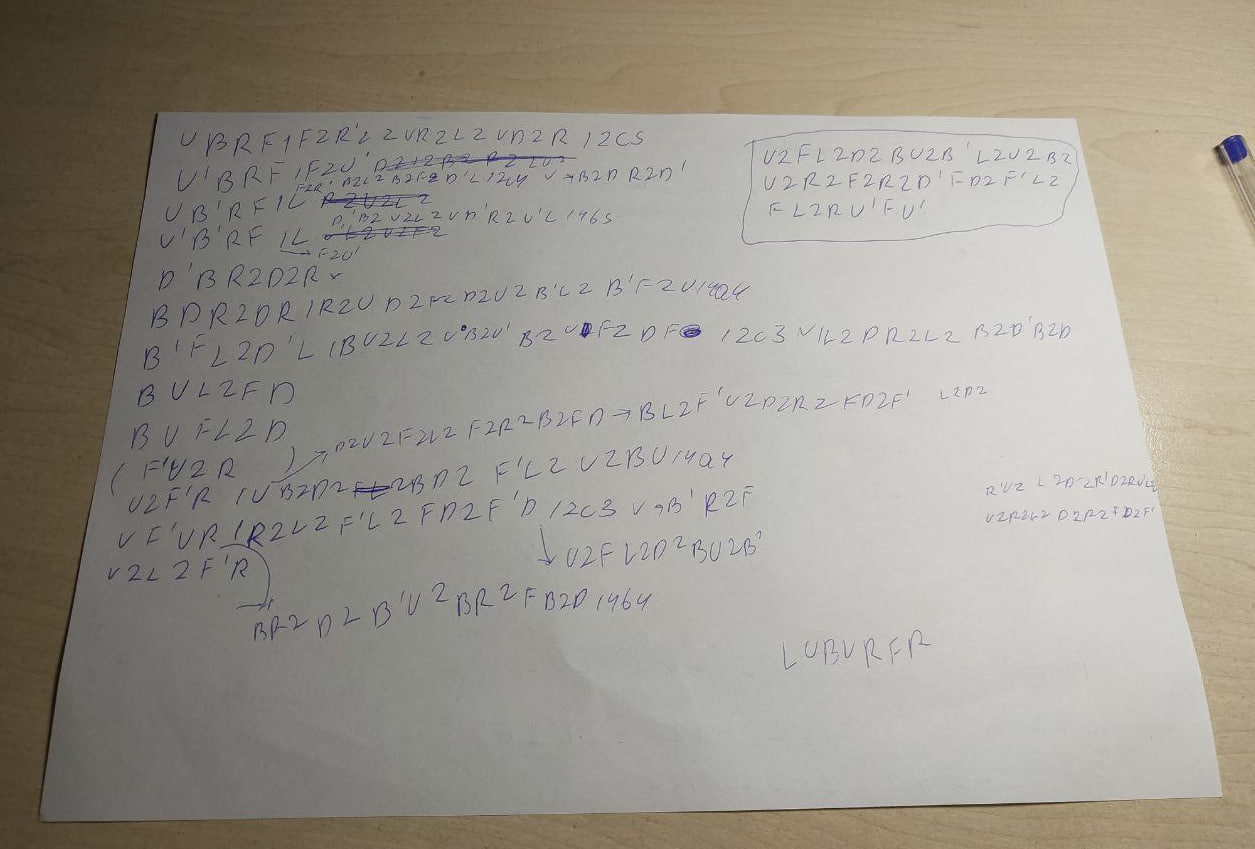 U B R F 1 F2 R' L2 U R2 L2 U D2 R 12C5
U' B R F 1 F2 U' D2 L2 B2 R2 L U2
F2 R' B2 L2 B2 F2 D' L 12C4 U → B2 D R2 D'
U B' R F 1 L R2 U2 L2
D' B2 U2 L2 U D' R2 U' L 146S
U' B' R F 1 L U' L2 U2 F2
→ F2 U'
D' B R2 D2 R x
B D R2 D R 1 R2 U D2 F2 D2 U2 B' L2 B' F2 U 14a4
B' F L2 D' L 1 B U2 L2 U' B2 U' B2 U D F2 D F 12C3 U 1L2 D R2 L2 B2 D' B2 D
B U L2 F D
B U F L2 D
( F' U2 R ) → D2 U2 F2 L2 F2 R2 B2 F D → B L2 F' U2 D2 R2 F D2 F' L2 D2
U2 F' R 1 U B2 D2 F L2 B D2 F' L2 U2 B U 14a4
U F' U R 1 R2 L2 F' L2 F D2 F' D 12C3 U → B' R2 F
↓ U2 F L2 D2 B U2 B'
U2 L2 F' R
→ B R2 D2 B' U2 B R2 F B2 D 1464
U2 F L2 D2 B U2 B' L2 U2 B2
U2 R2 F2 R2 D' F D2 F' L2
F L2 R U' F U'
R' U2 L2 D2 R' D2 R U L2
U2 R2 L2 D2 R2 F D2 F'
L U B U R F R